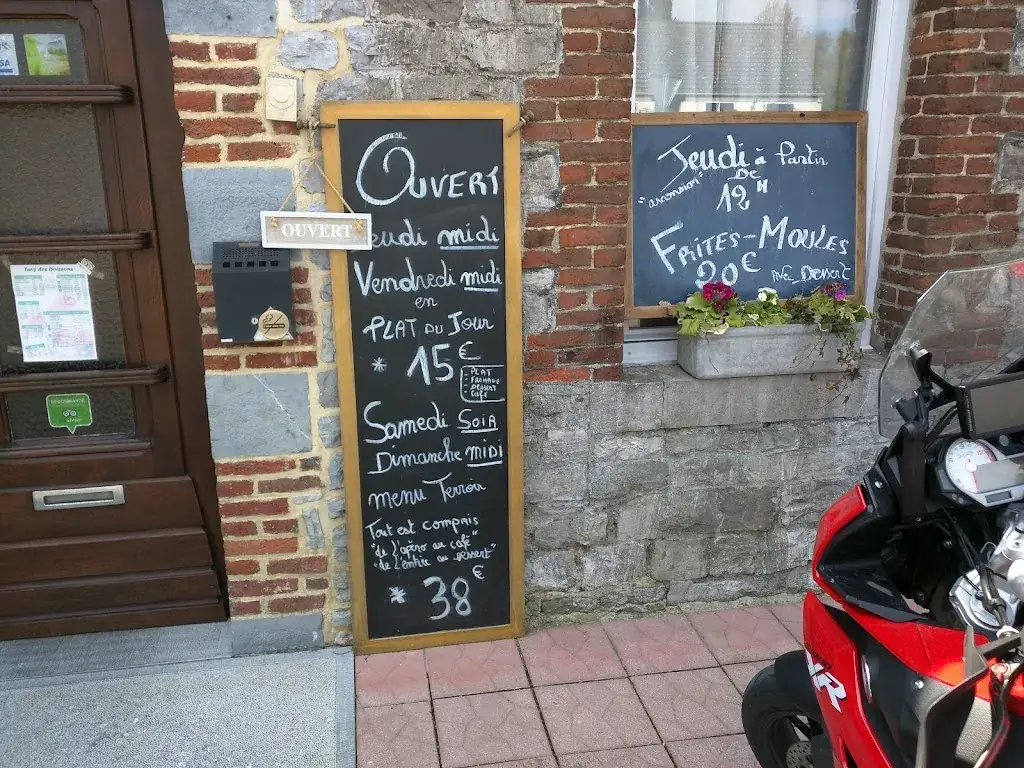 OUVERT
OUVERT
Jeudi midi
Vendredi midi
en
PLAT DU JOUR
* 15€
- PLAT
- FROMAGE
- DESSERT
- CAFÉ
Samedi SOIR
Dimanche MIDI
menu Terroir
Tout est compris
"de l'apéro au café"
"de l'entrée au dessert"
* 38€
Jeudi à partir
"ascension" DE
12H
FRITES-MOULES
20€ avec DESSERT
Tarif des Boissons
XR